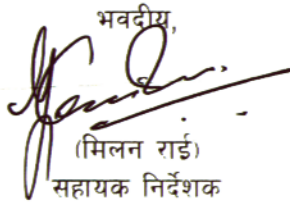 भवदीय,
(मिलन राई)
सहायक निर्देशक